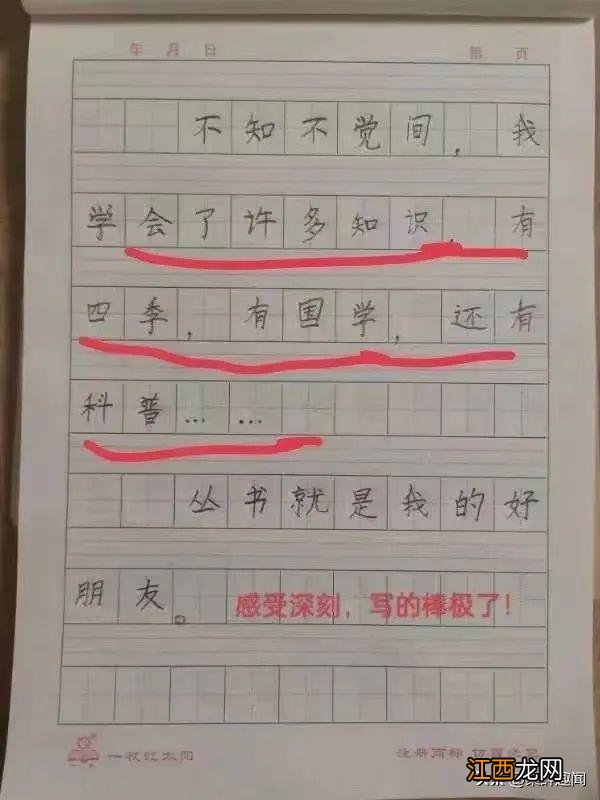 年 月 日 第 页
不知不觉间,我
学会了许多知识,有
四季,有国学,还有
科普……
丛书就是我的好
朋友。
感受深刻,写的棒极了!
一枚红太阳
注册商标 仿冒必究
江西龙网